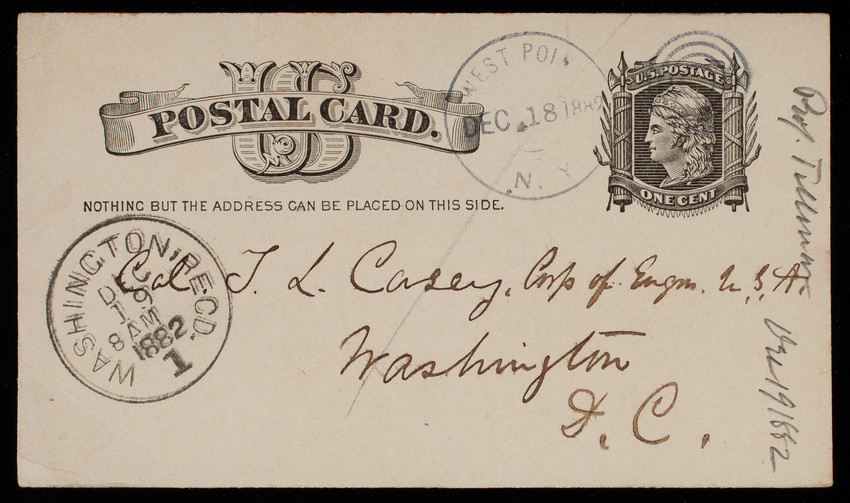 US
POSTAL CARD.
NOTHING BUT THE ADDRESS CAN BE PLACED ON THIS SIDE.
WEST POIN
DEC. 18 1882
N. Y.
U.S. POSTAGE
ONE CENT
WASHINGTON, REC'D.
DEC
19
8 AM
1882
1
Col. T. L. Casey, Corps of Engrs. U.S.A.
Washington
D. C.
Prof. Tillman Dec 19 1882